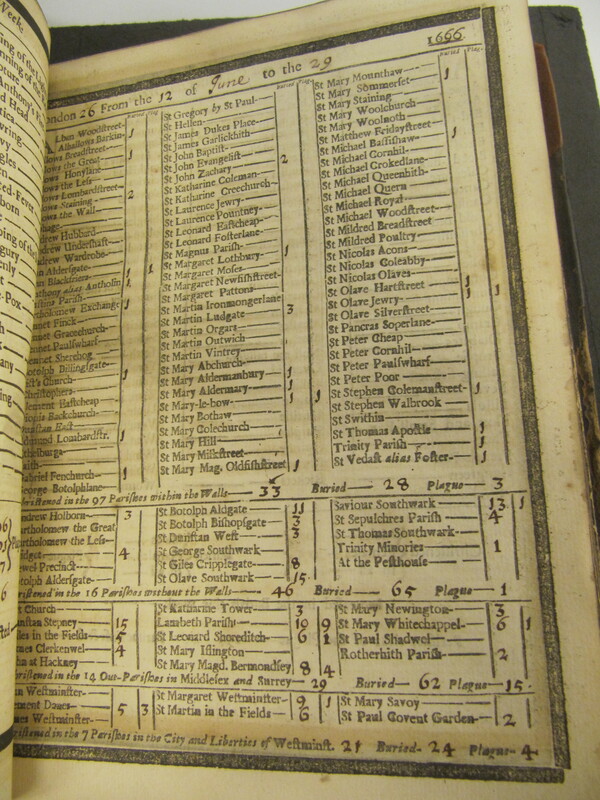 1666.
London 26 From the 12 of June to the 29
Buried Plag.
Alban Woodstreet
Alhallows Barkin 1
Breadstreet 1
the Great
Honylane
the Less
Lombardstreet 2
Staining
the Wall
Hubbard
Undershaft
Wardrobe
Aldersgate 1 1
Blackfriers 1
alias Antholin 1
Parish
Exchange 1
Finck
Gracechurch
Paulswharf
Sherehog
Billingsgate 1
Church 1
Eastcheap
Backchurch
East
Lombardstr. 1
Fenchurch 1
George Botolphlane
Buried Plag.
St Gregory by St Paul
St Hellen
St James Dukes Place
St James Garlickhith
St John Baptist
St John Evangelist
St John Zachary 2
St Katharine Coleman
St Katharine Creechurch
St Laurence Jewry
St Laurence Pountney
St Leonard Eastcheap
St Leonard Fosterlane
St Magnus Parish
St Margaret Lothbury 1
St Margaret Moses
St Margaret Newfishstreet
St Margaret Pattons
St Martin Ironmongerlane
St Martin Ludgate 3
St Martin Orgars
St Martin Outwich
St Martin Vintrey
St Mary Abchurch
St Mary Aldermanbury 1
St Mary Aldermary 1
St Mary-le-bow 1
St Mary Bothaw
St Mary Colechurch
St Mary Hill
St Mary Milkstreet
St Mary Mag. Oldfishstreet 1
Buried Plag.
St Mary Mounthaw 1
St Mary Sommerset
St Mary Staining
St Mary Woolchurch
St Mary Woolnoth
St Matthew Fridaystreet 1
St Michael Bassishaw
St Michael Cornhil
St Michael Crokedlane
St Michael Queenhith
St Michael Quern
St Michael Royal
St Michael Woodstreet
St Mildred Breadstreet
St Mildred Poultry
St Nicolas Acons
St Nicolas Coleabby
St Nicolas Olaves
St Olave Hartstreet 1
St Olave Jewry 1 1
St Olave Silverstreet
St Pancras Soperlane
St Peter Cheap
St Peter Cornhil
St Peter Paulswharf
St Peter Poor
St Stephen Colemanstreet 1
St Stephen Walbrook
St Swithin
St Thomas Apostle 1
Trinity Parish 1
St Vedast alias Foster 1
in the 97 Parishes within the Walls 33 Buried 28 Plague 3
Andrew Holborn 3
Bartholomew the Great
Bartholomew the Less
4
Precinct
Botolph Aldersgate
St Botolph Aldgate 11
St Botolph Bishopsgate 3
St Dunstan West 3
St George Southwark
St Giles Cripplegate 8
St Olave Southwark 15
Saviour Southwark 13 1
St Sepulchres Parish 4
St Thomas Southwark
Trinity Minories 1
At the Pesthouse
in the 16 Parishes without the Walls 46 Buried 65 Plague 1
Church
Stepney 15
in the Fields 5
Clerkenwel 4
John at Hackney
St Katharine Tower 3
Lambeth Parish 19 9
St Leonard Shoreditch 6 1
St Mary Islington
St Mary Magd. Bermondsey 8 4
St Mary Newington 3
St Mary Whitechappel 6 1
St Paul Shadwel
Rotherhith Parish 2
in the 14 Out-Parishes in Middlesex and Surrey 29 Buried 62 Plague 15
Westminster
Clement Danes 5 3
James Westminster
St Margaret Westminster 9 1
St Martin in the Fields 6
St Mary Savoy
St Paul Covent Garden 2
in the 7 Parishes in the City and Liberties of Westminst. 21 Buried 24 Plague 4